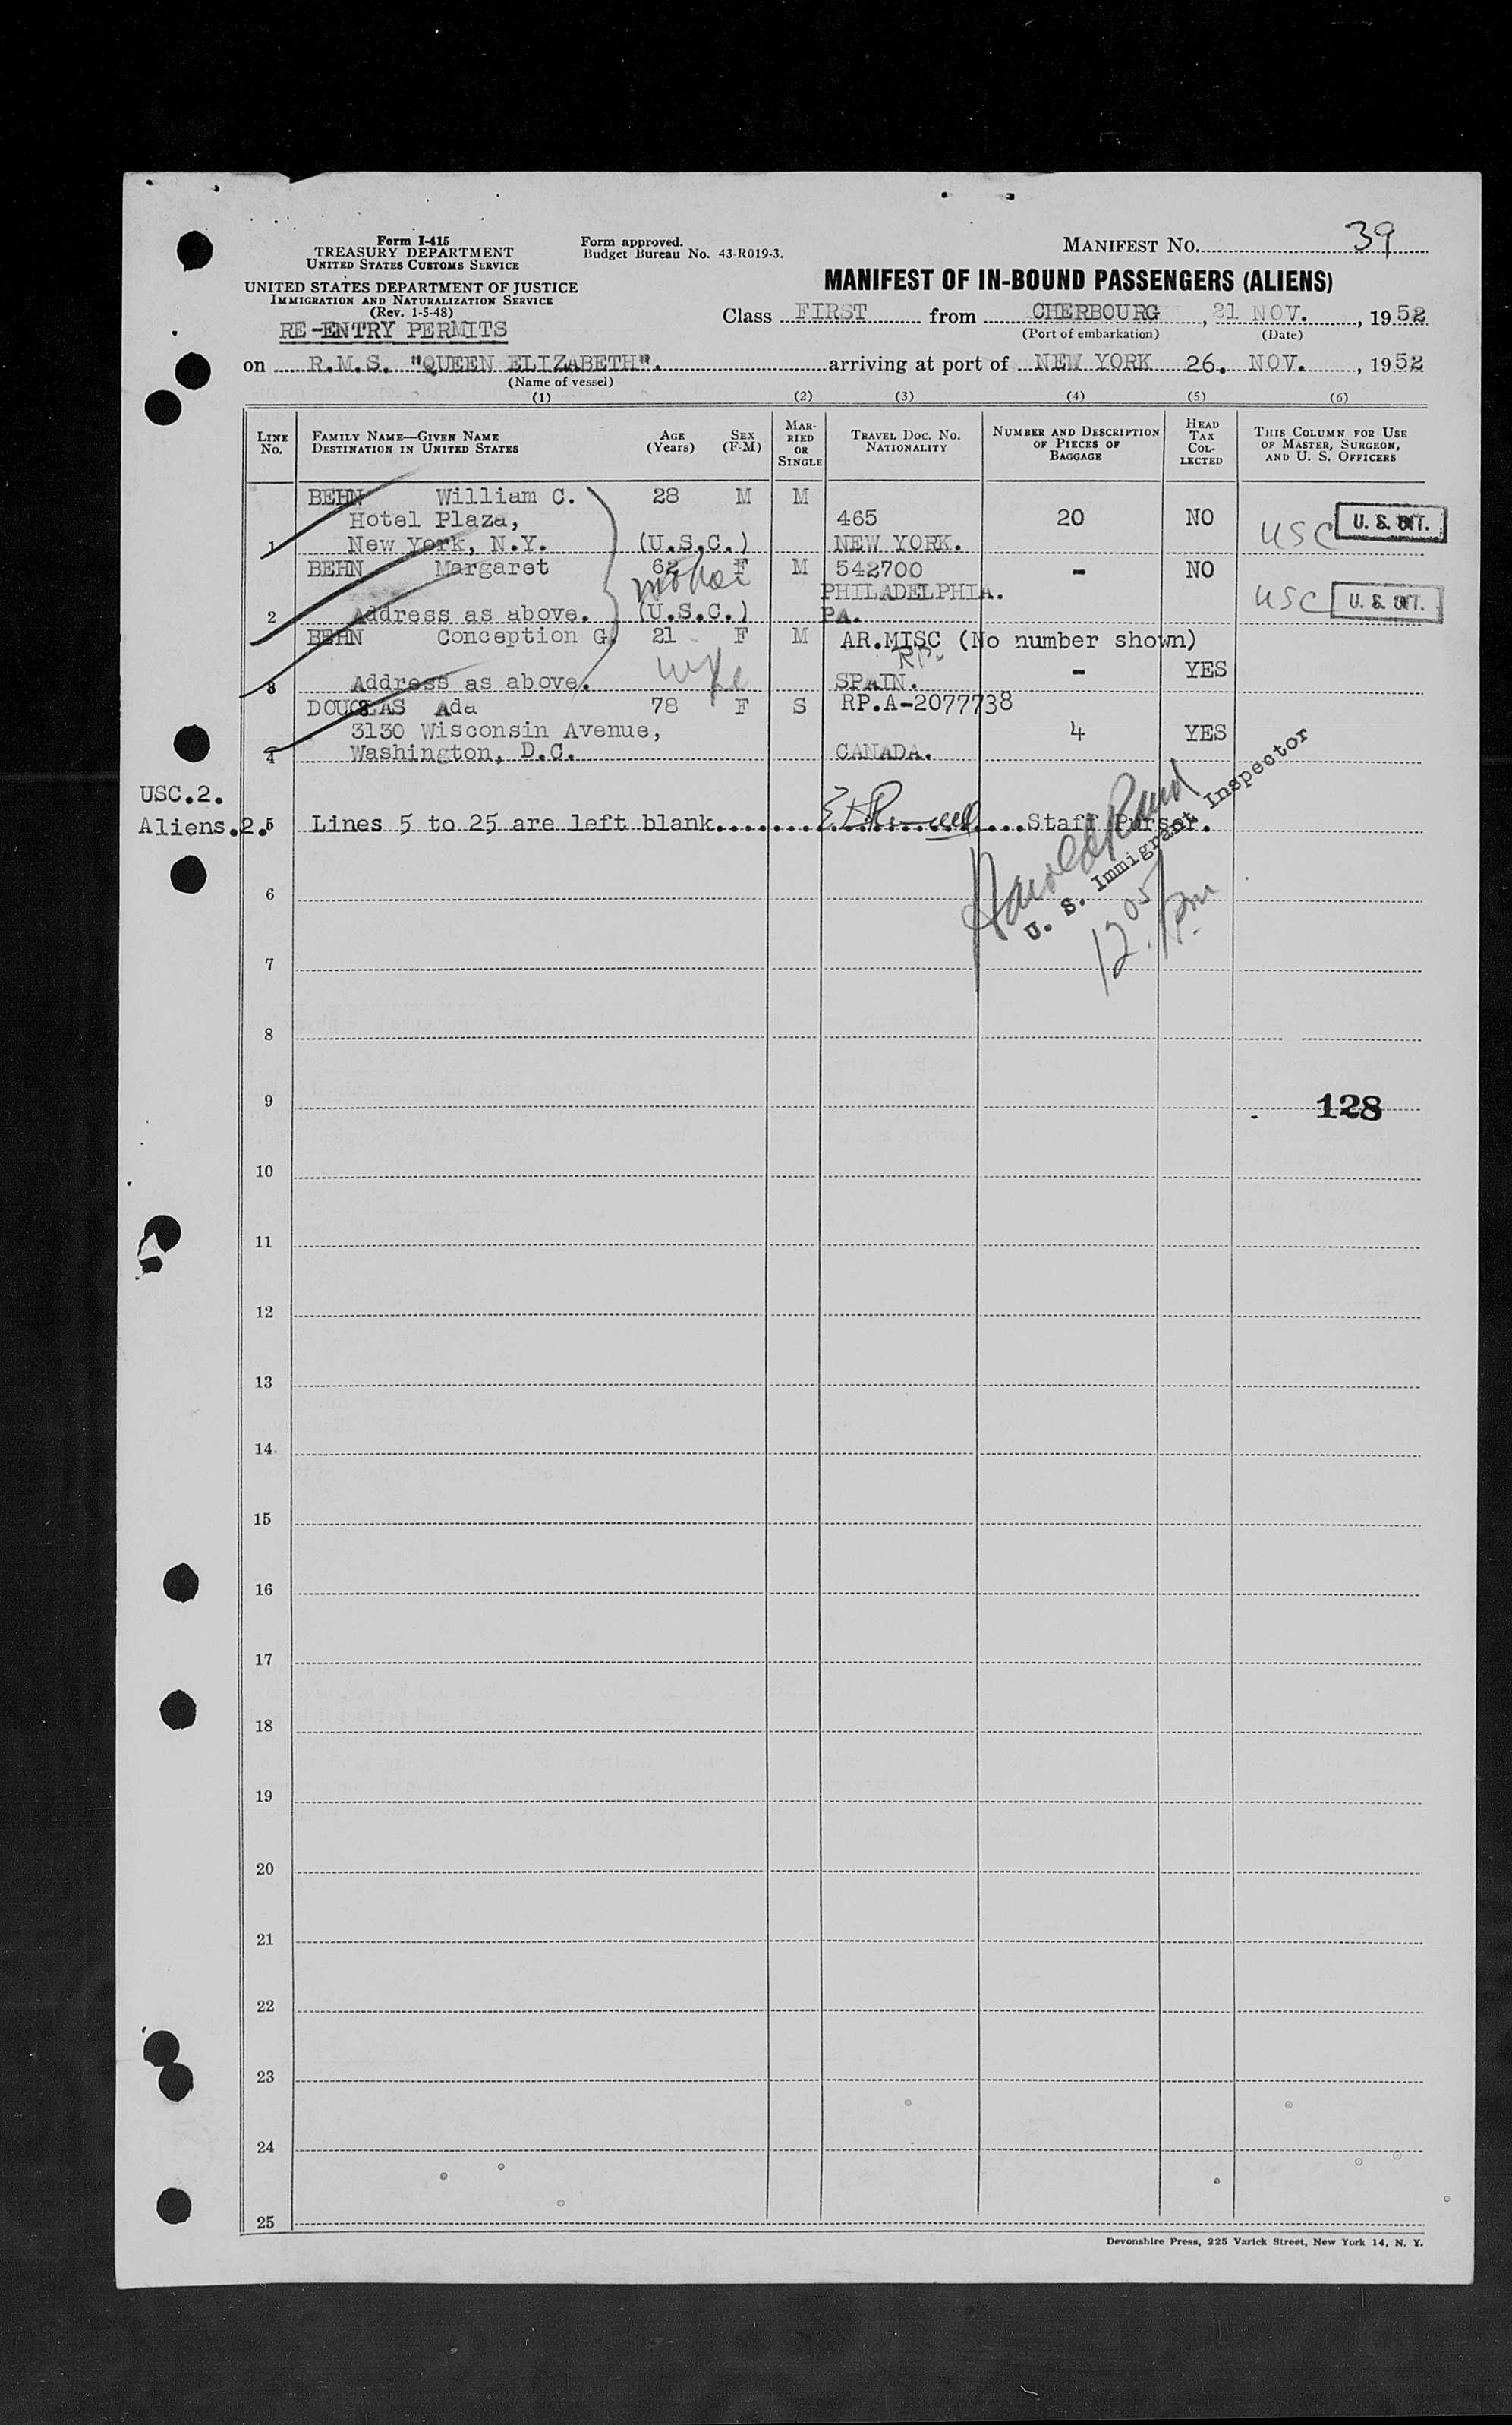 Form I-415
TREASURY DEPARTMENT
UNITED STATES CUSTOMS SERVICE
UNITED STATES DEPARTMENT OF JUSTICE
IMMIGRATION AND NATURALIZATION SERVICE
(Rev. 1-5-48)
RE-ENTRY PERMITS
Form approved.
Budget Bureau No. 43-R019-3.
MANIFEST No. 39
MANIFEST OF IN-BOUND PASSENGERS (ALIENS)
Class FIRST from CHERBOURG, 21 NOV., 1952
(Port of embarkation) (Date)
on R.M.S. "QUEEN ELIZABETH". arriving at port of NEW YORK 26. NOV., 1952
(Name of vessel)
(1) (2) (3) (4) (5) (6)
LINE No. FAMILY NAME—GIVEN NAME DESTINATION IN UNITED STATES AGE (Years) SEX (F-M) MARRIED OR SINGLE TRAVEL DOC. NO. NATIONALITY NUMBER AND DESCRIPTION OF PIECES OF BAGGAGE HEAD TAX COLLECTED THIS COLUMN FOR USE OF MASTER, SURGEON, AND U. S. OFFICERS
BEHN William C. 28 M M
Hotel Plaza, 465 20 NO USC U. S. CIT.
1 New York, N.Y. (U.S.C.) NEW YORK.
BEHN Margaret 62 F M 542700 - NO
mother PHILADELPHIA. USC U. S. CIT.
2 Address as above. (U.S.C.) PA.
BEHN Conception G. 21 F M AR.MISC (No number shown)
wife RP. - YES
3 Address as above. SPAIN.
DOUGLAS Ada 78 F S RP.A-2077738
3130 Wisconsin Avenue, 4 YES
4 Washington, D.C. CANADA.
USC.2.
Aliens.2. 5 Lines 5 to 25 are left blank. Staff Purser.
Harold
U. S. Immigrant Inspector
12.05 pm
6
7
8
9 128
10
11
12
13
14
15
16
17
18
19
20
21
22
23
24
25
Devonshire Press, 225 Varick Street, New York 14, N. Y.